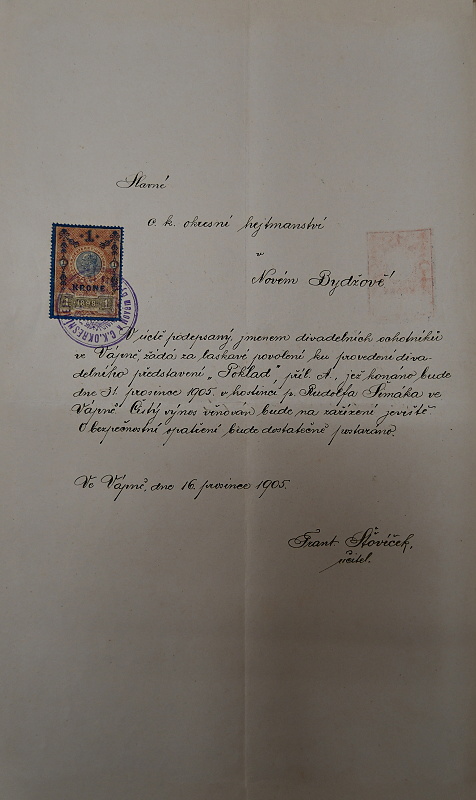 Slavné
c. k. okresní hejtmanství
v
Novém Bydžově!
1
KRONE
1 1898 1
C. K. OKRESNÍ
V úctě podepsaný, jmenem divadelních ochotníků
ve Vápně, žádá za laskavé povolení ku provedení diva-
delního představení „Poklad“, příl. A, jež konáno bude
dne 31. prosince 1905 v hostinci p. Rudolfa Šimáka ve
Vápně. Čistý výnos věnován bude na zařízení jeviště.
O bezpečnostní opatření bude dostatečně postaráno.
Ve Vápně, dne 16. prosince 1905.
Frant. Šťovíček,
učitel.